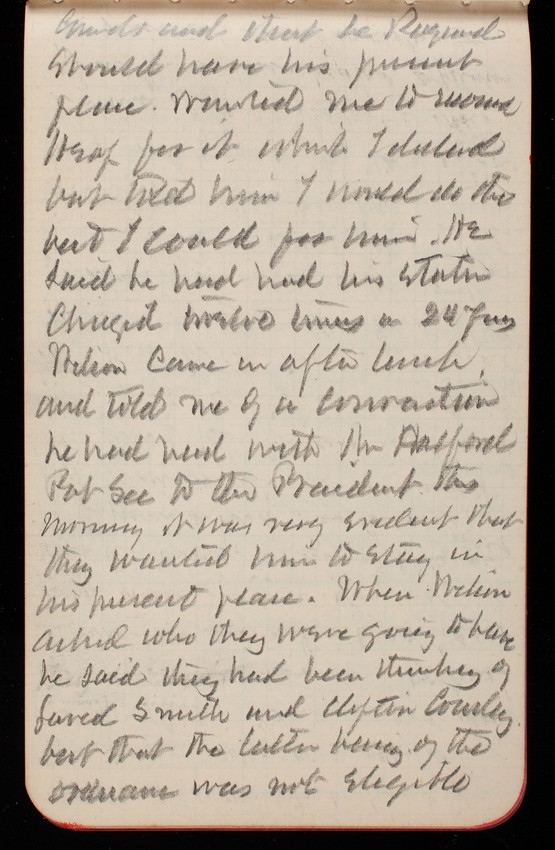 and that he
should have his present
place. Wanted me to
for it which I
but told him I would do the
best I could for him. He
said he had had his station
Changed twelve times in 24 yrs
Nelson Came in after lunch,
and told me of a Conversation
he had had with Mr Halford
Pvt Sec to the President this
morning it was very evident that
they wanted him to stay in
his present place. When Nelson
asked who they were going to have
he said they had been thinking of
Jared Smith and
but that the latter being of the
ordnance was not Eligible